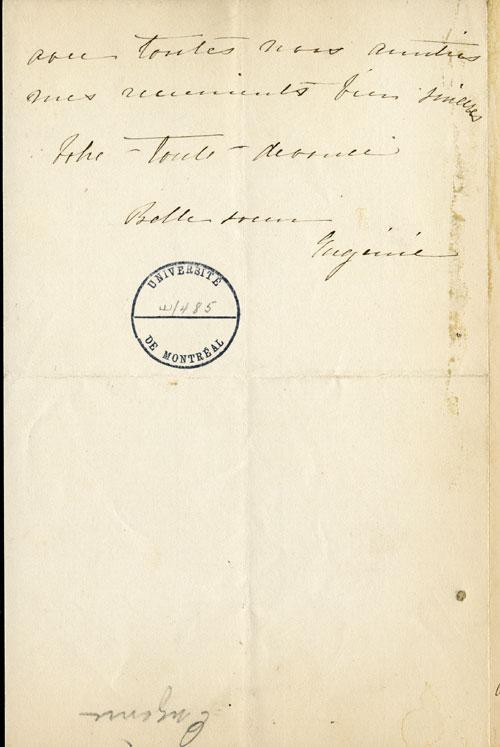 avec toutes nos amitiés
mes remerciements bien sincères
Votre toute dévouée
Belle soeur
Eugénie
UNIVERSITÉ
1485
DE MONTRÉAL
Eugénie